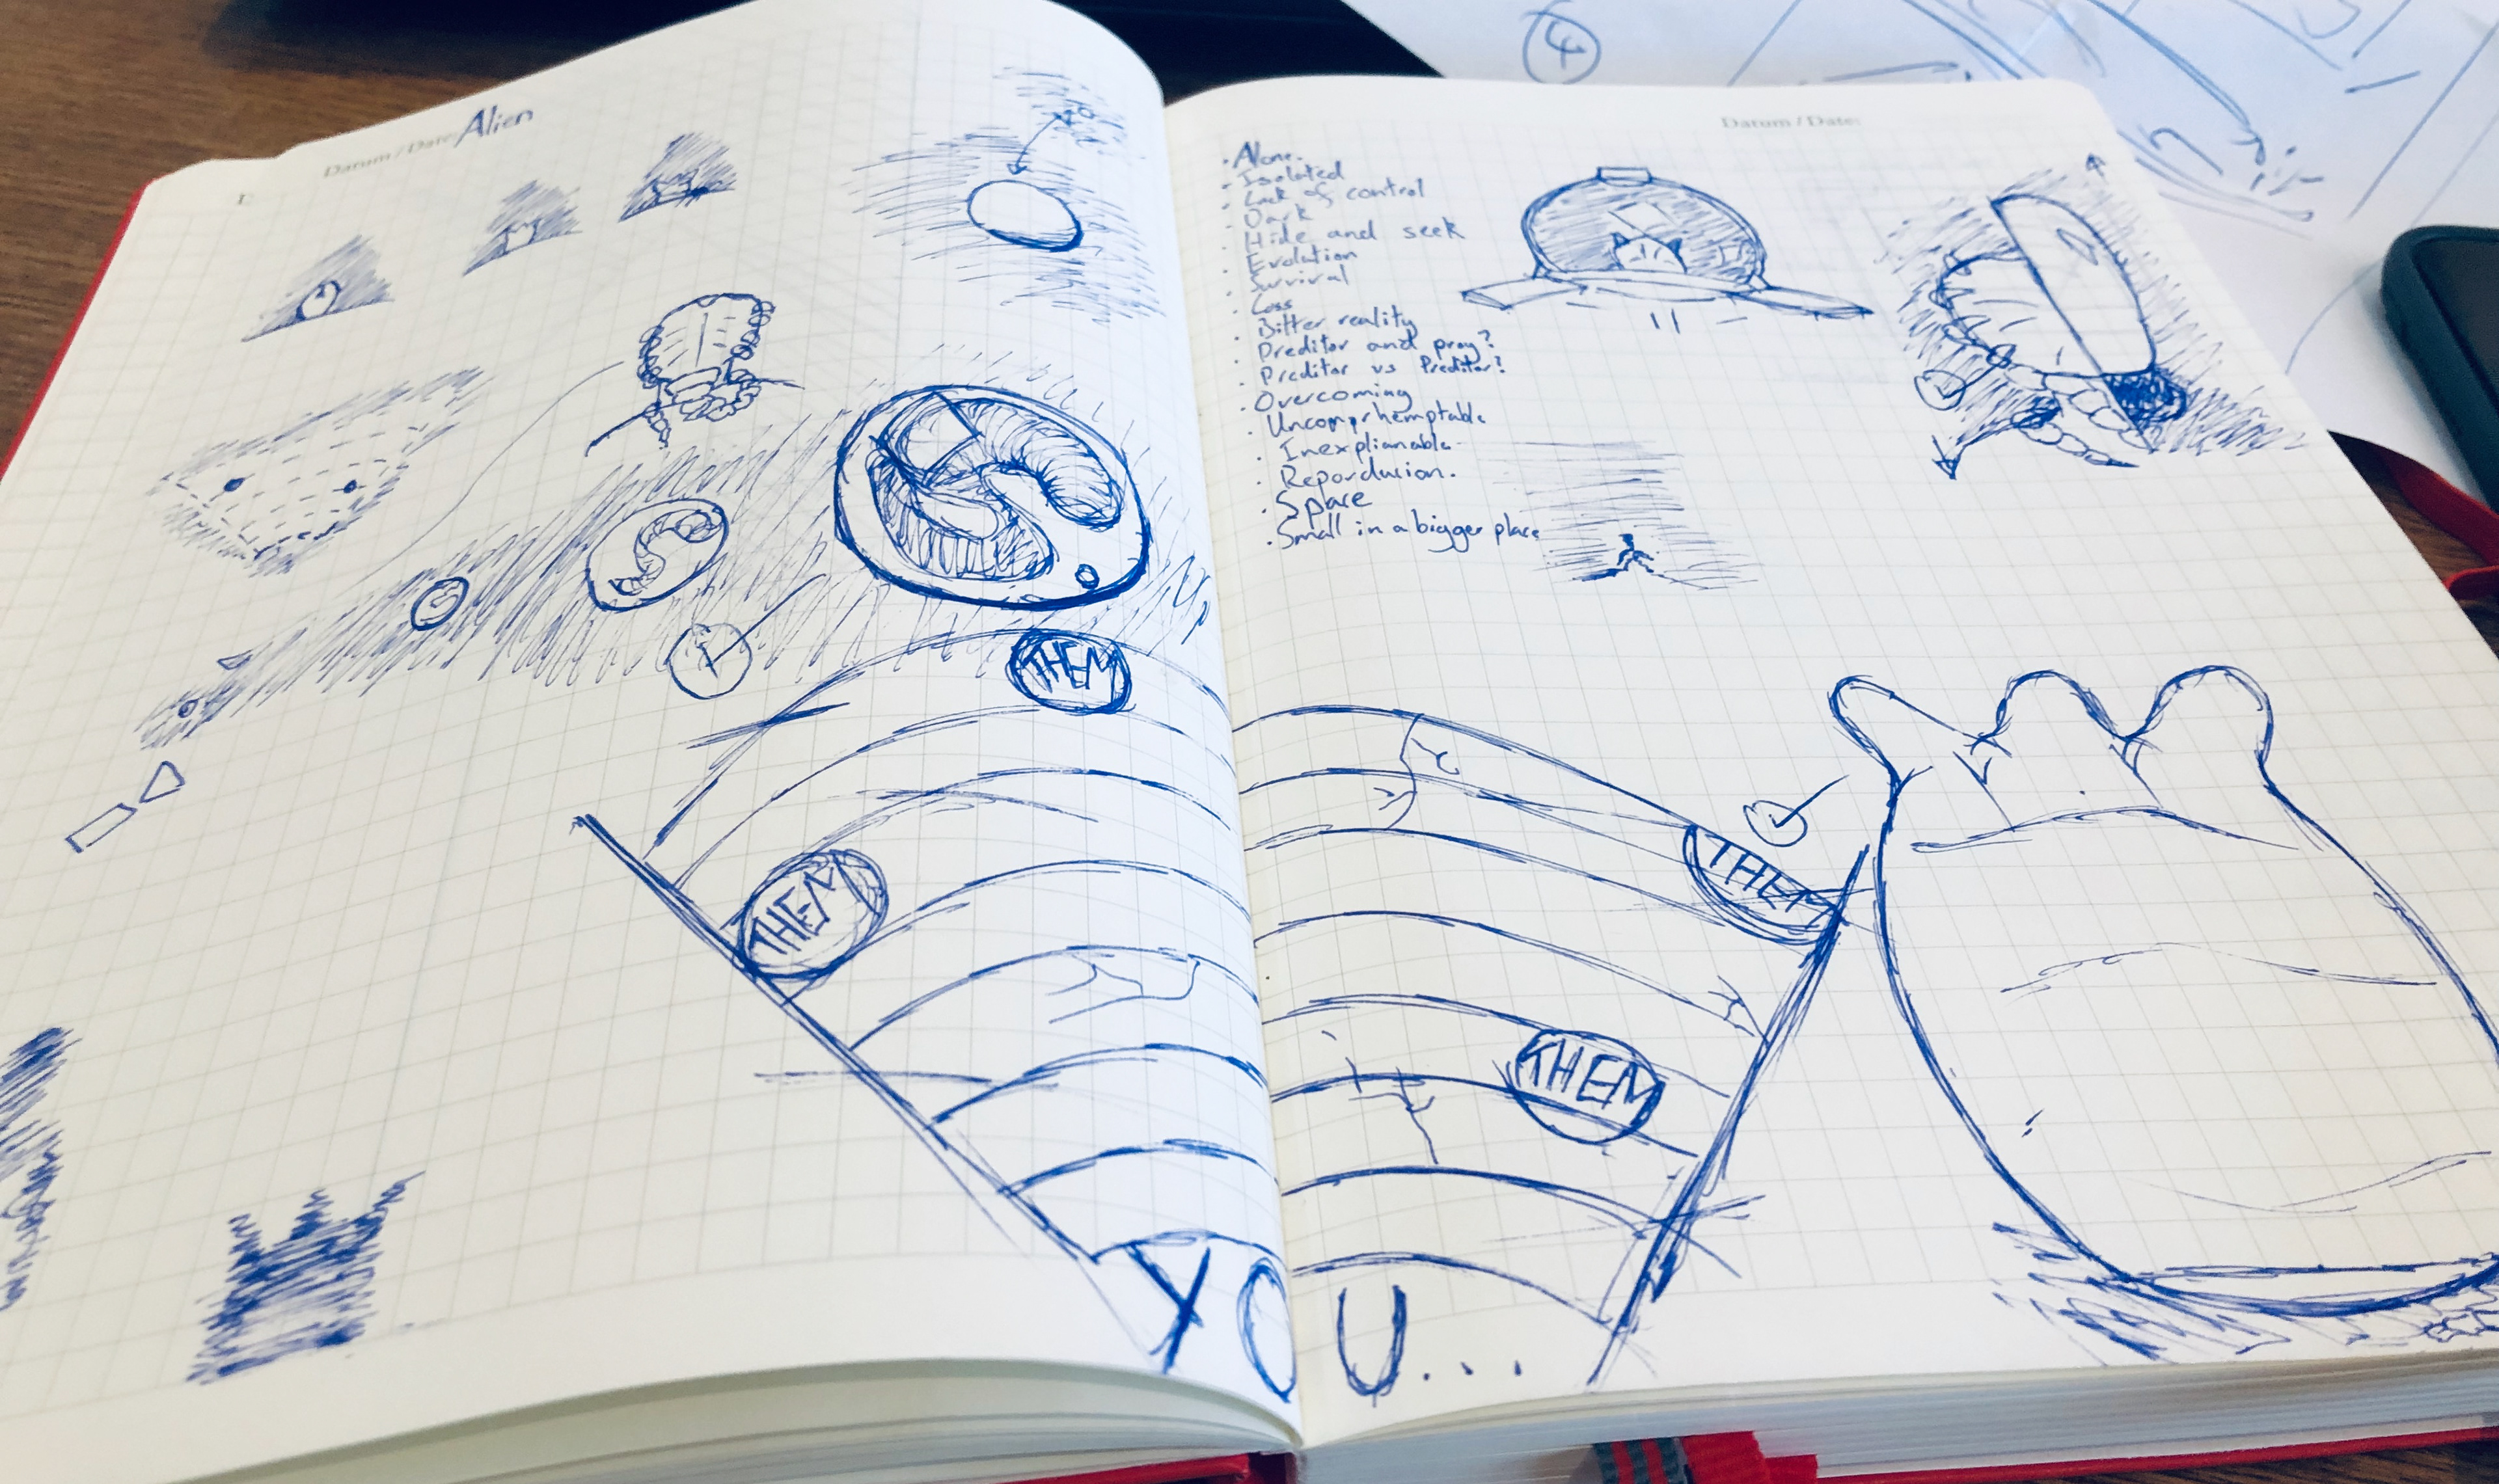 Datum / Date: Alien
1.
Datum / Date:
④
• Alone.
• Isolated
• Lack of control
• Dark
• Hide and seek
• Evolution
• Survival
• Loss
• Bitter reality
• Preditor and pray?
• Preditor vs Preditor?
• Overcoming
• Uncomprhemptable
• Inexplianable
• Reporducion.
• Space
• Small in a bigger place
THEM
THEM
THEM
THEM
YOU...